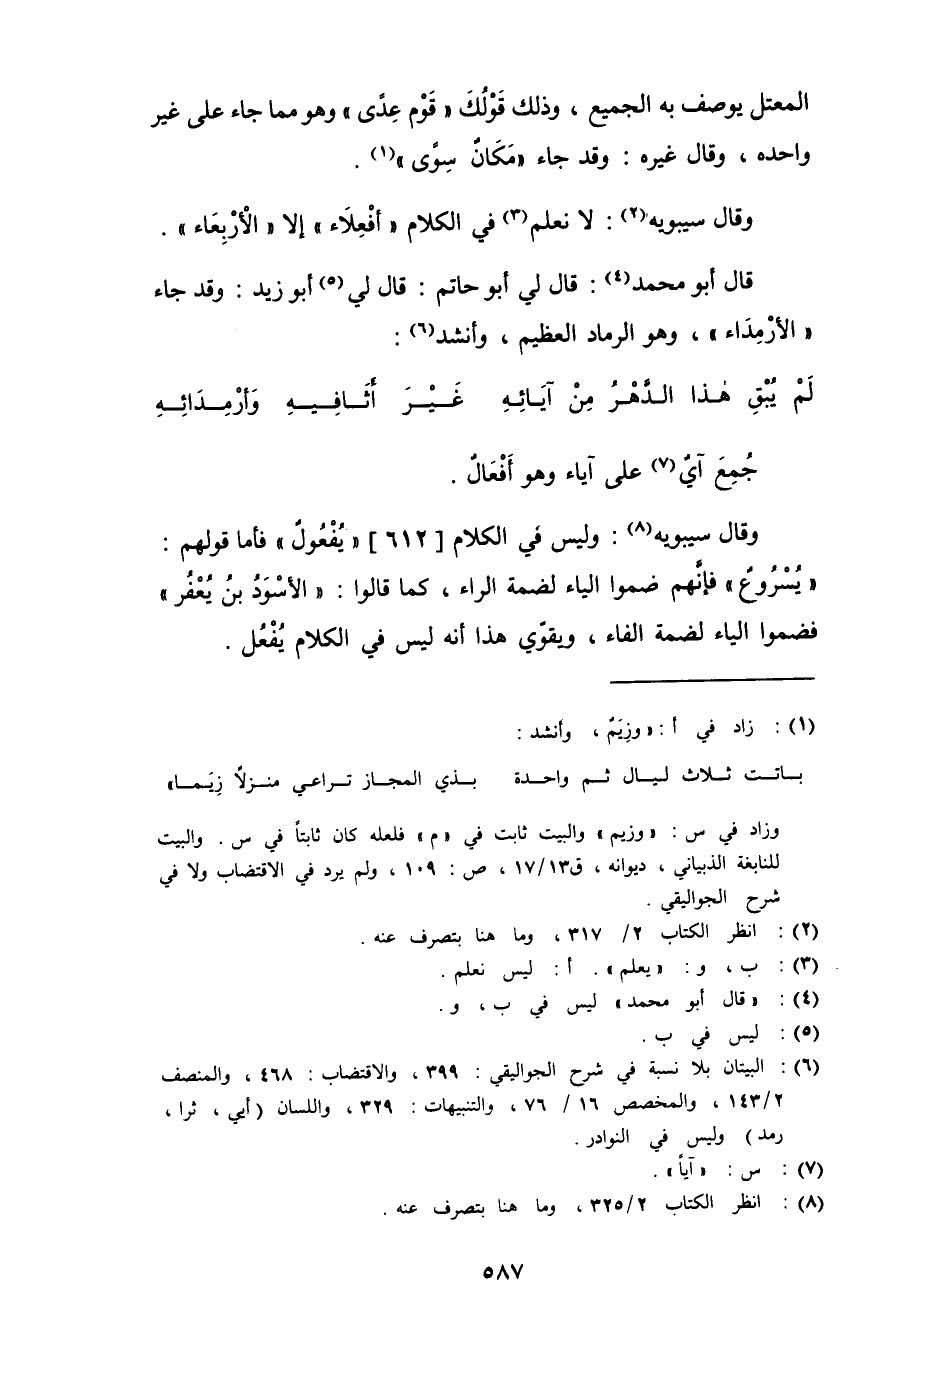 المعتل يوصف به الجميع ، وذلك قَوْلُكَ « قَوْم عِدًى » وهو مما جاء على غير
واحده ، وقال غيره : وقد جاء «مَكَانٌ سِوًى »(١) .
وقال سيبويه(٢) : لا نعلم(٣) في الكلام « أفْعِلَاء » إلا « الْأَرْبِعَاء » .
قال أبو محمد(٤) : قال لي أبو حاتم : قال لي(٥) أبو زيد : وقد جاء
« الأرْمِدَاء » ، وهو الرماد العظيم ، وأنشد(٦) :
لَمْ يُبْقِ هٰذا الدَّهْرُ مِنْ آيَائِهِ غَيْرَ أَثَافِيهِ وَأرْمِدَائِهِ
جُمِعَ آيٌ(٧) على آياء وهو أَفْعَالٌ .
وقال سيبويه(٨) : وليس في الكلام [ ٦١٢ ] « يُفْعُولٌ » فأما قولهم :
« يُسْرُوعٌ » فإنَّهم ضموا الياء لضمة الراء ، كما قالوا : « الأسْوَدُ بنُ يُعْفُر »
فضموا الياء لضمة الفاء ، ويقوّي هذا أنه ليس في الكلام يُفْعُل .
(١) : زاد في أ : « وزِيَمٌ ، وأنشد :
باتت ثلاث ليال ثم واحدة بذي المجاز تراعي منزلاً زِيَما»
وزاد في س : « وزيم » والبيت ثابت في «م » فلعله كان ثابتاً في س . والبيت
للنابغة الذبياني ، ديوانه ، ق١٧/١٣ ، ص : ١٠٩ ، ولم يرد في الاقتضاب ولا في
شرح الجواليقي .
(٢) : انظر الكتاب ٢/ ٣١٧ ، وما هنا بتصرف عنه .
(٣) : ب ، و : « يعلم » . أ : ليس نعلم .
(٤) : « قال أبو محمد » ليس في ب ، و .
(٥) : ليس في ب .
(٦) : البيتان بلا نسبة في شرح الجواليقي : ٣٩٩ ، والاقتضاب : ٤٦٨ ، والمنصف
١٤٣/٢ ، والمخصص ١٦ / ٧٦ ، والتنبيهات : ٣٢٩ ، واللسان (أيي ، ثرا ،
رمد) وليس في النوادر .
(٧) : س : « آياً » .
(٨) : انظر الكتاب ٣٢٥/٢ ، وما هنا بتصرف عنه .
٥٨٧